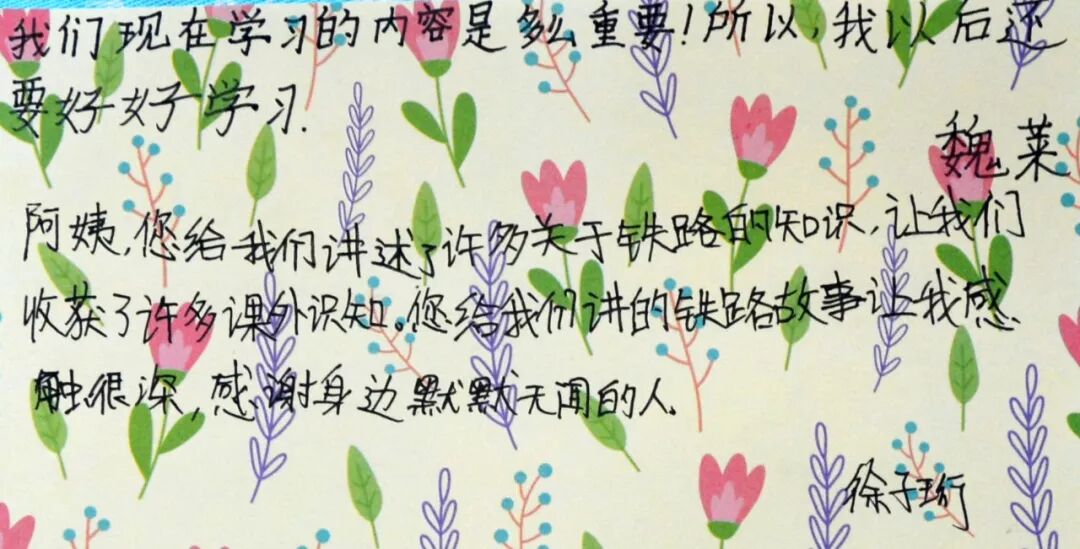 我们现在学习的内容是多么重要!所以,我以后还
要好好学习.
魏莱
阿姨,您给我们讲述了许多关于铁路的知识,让我们
收获了许多课外识知。您给我们讲的铁路故事让我感
触很深,感谢身边默默无闻的人.
徐子珩